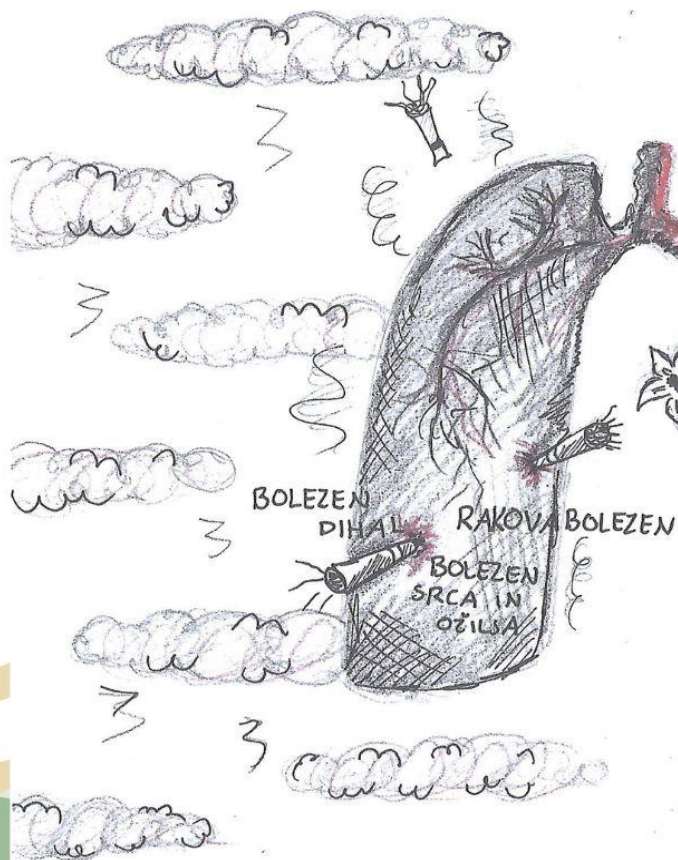 BOLEZEN
DIHAL
RAKOVA BOLEZEN
BOLEZEN
SRCA IN
OŽILJA